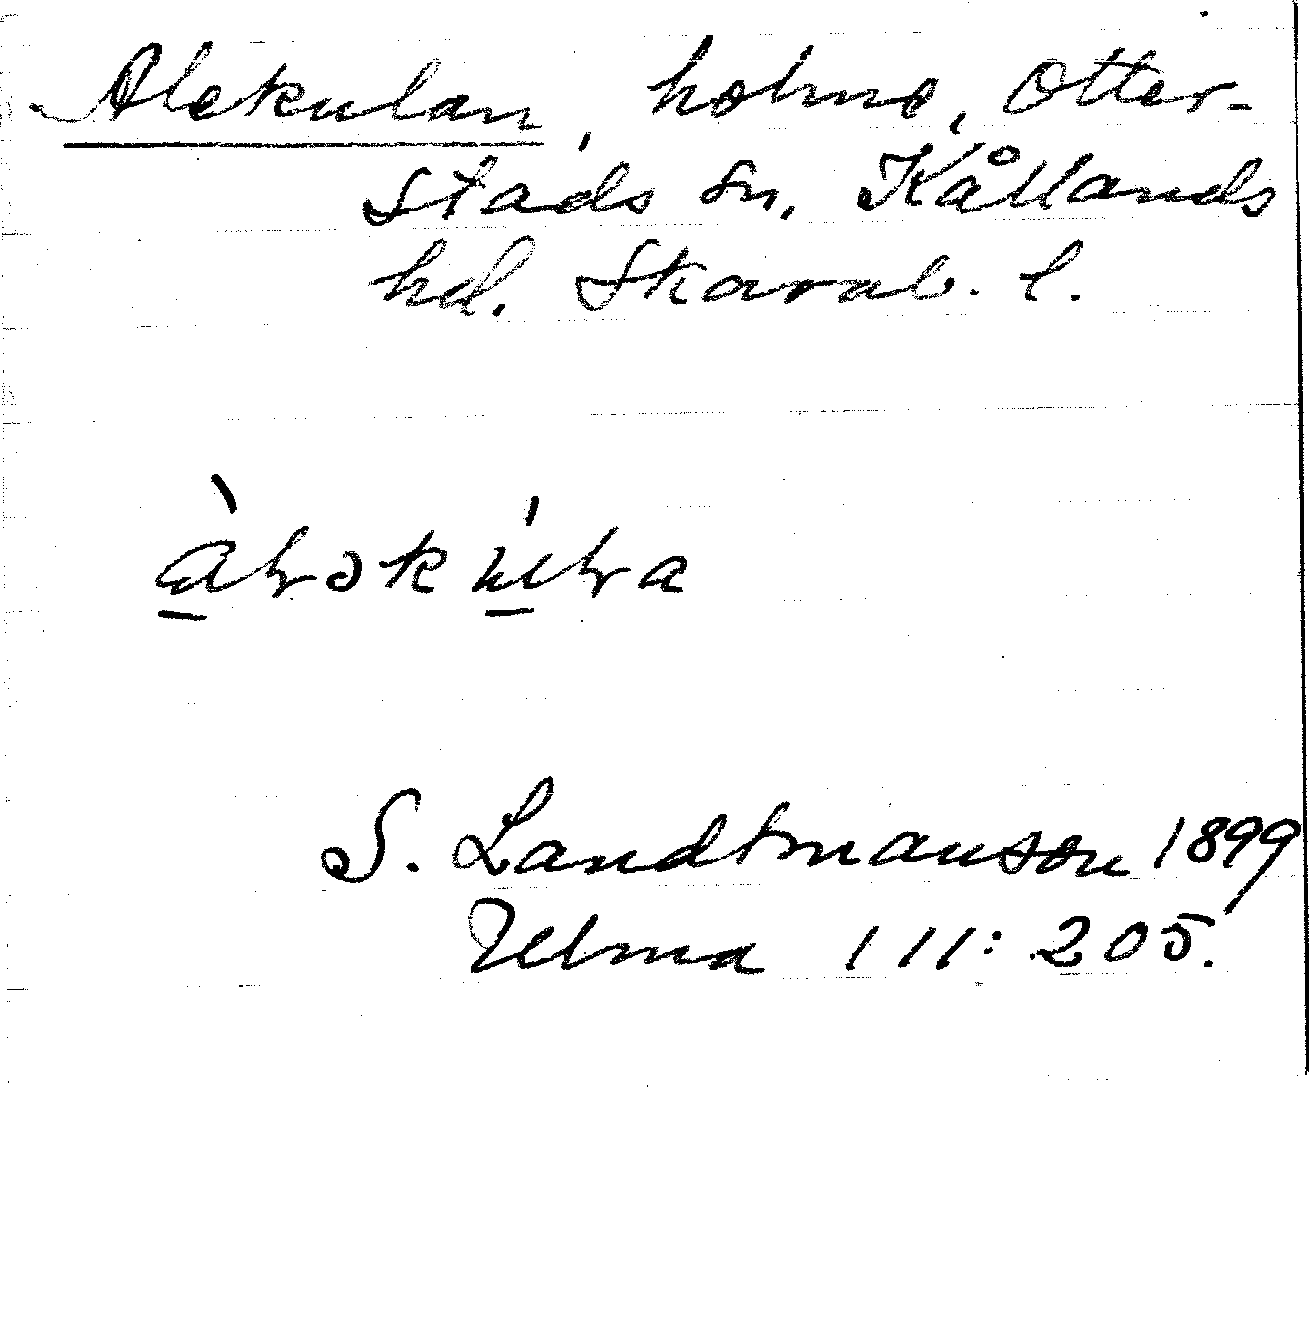 Alekulan, holme, Otter-
stads sn, Kållands
hd. Skarab. l.
àlɘkúla
S. Landtmanson 1899
Ulma 111:205.